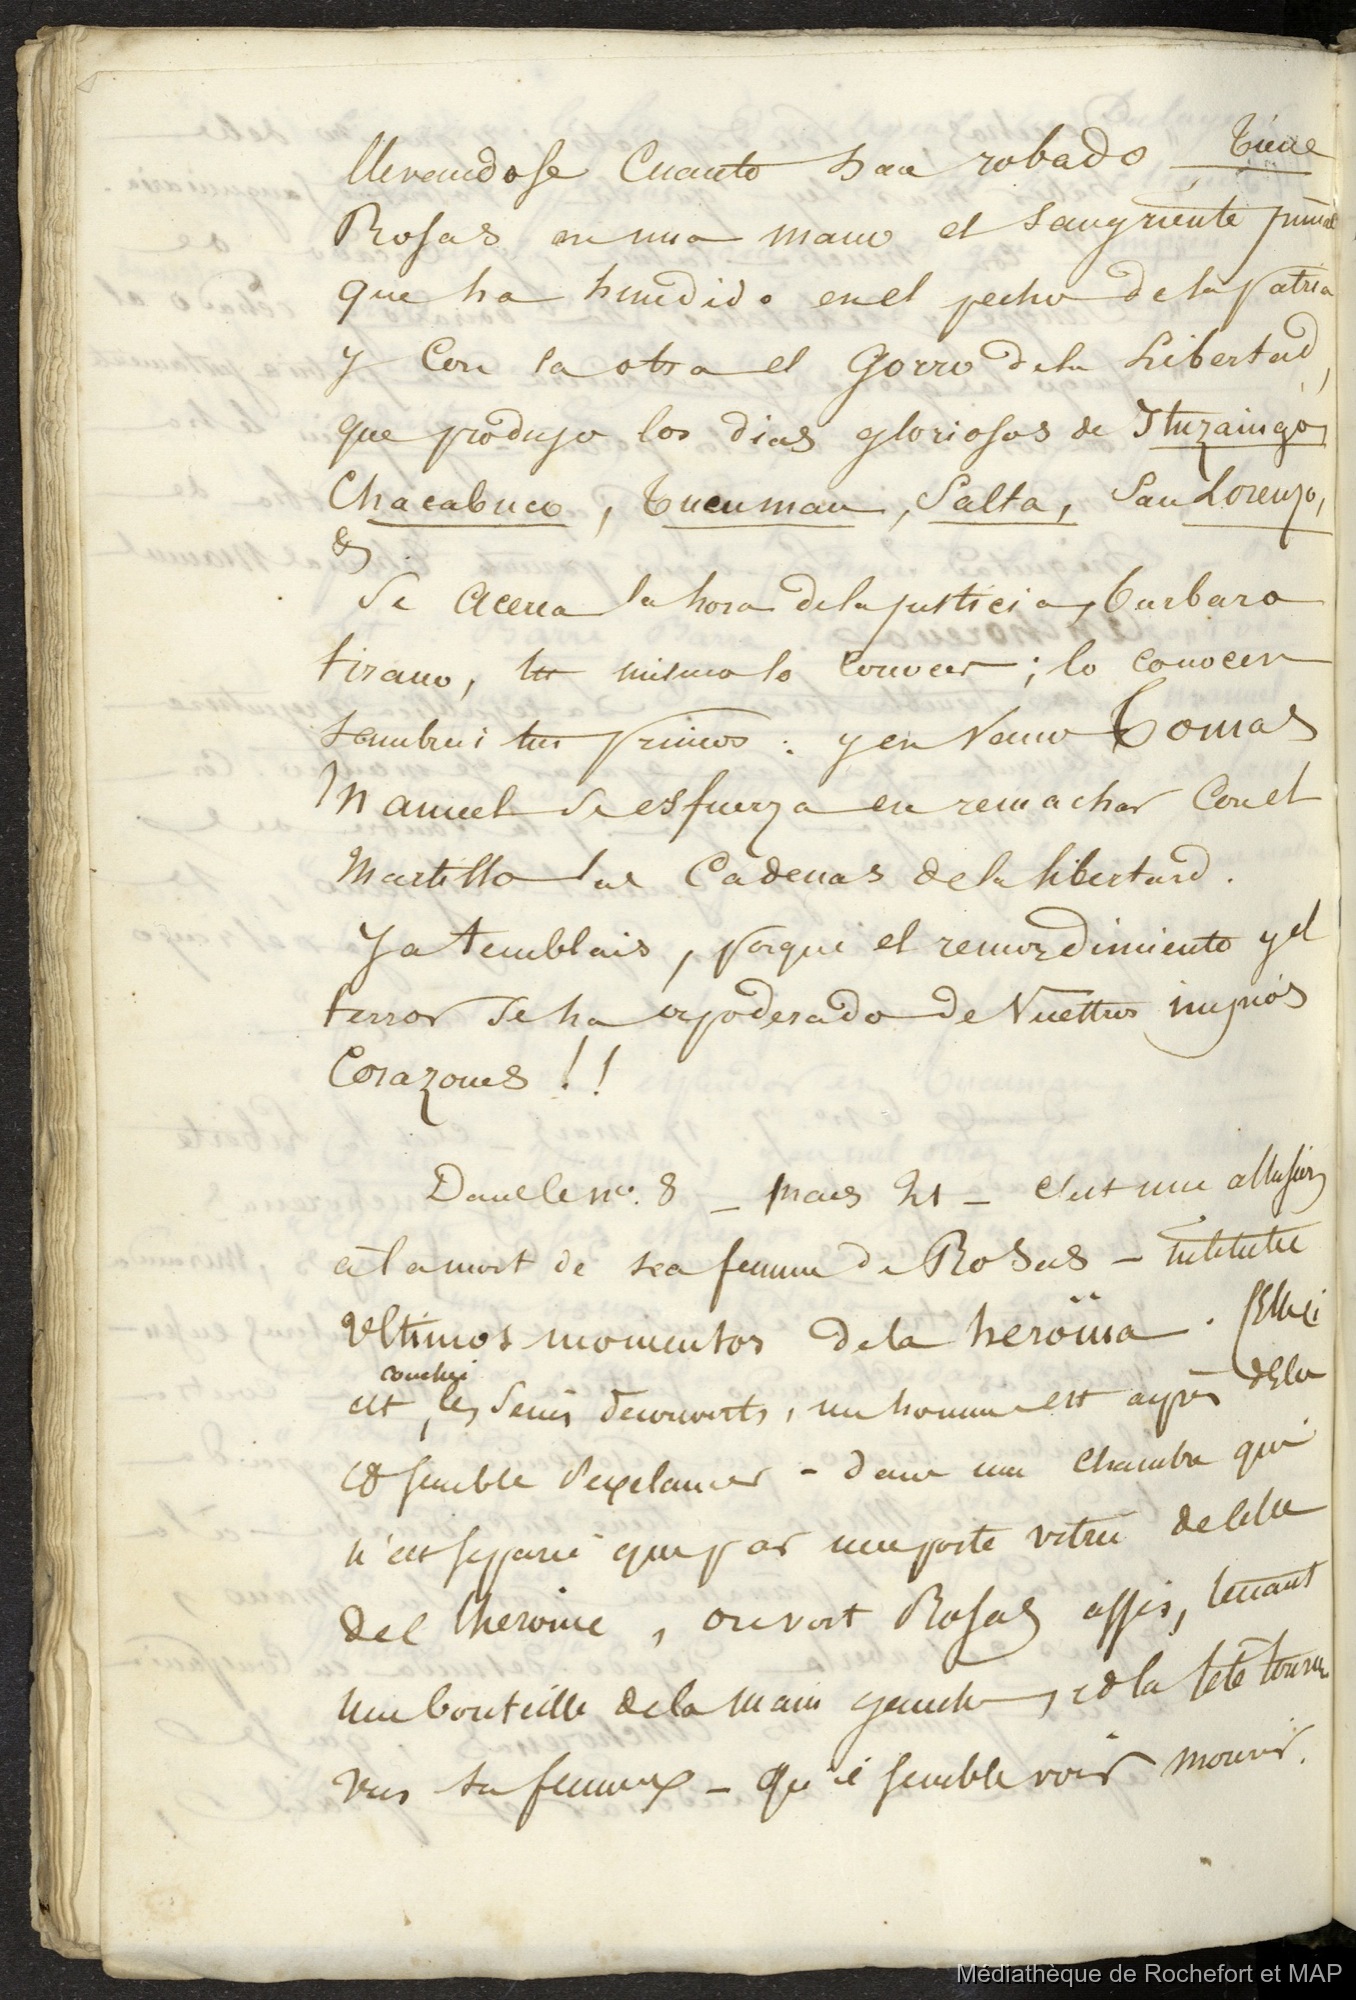 llevandose Cuanto han robado — Tiene
Rosas en una mano el sangriente puñal
que ha hundido en el pecho de la patria
y con la otra el Gorro de la Libertad,
que produjo los dias gloriosos de Ituzaingo,
Chacabuco, Tucuman, Salta, San Lorenzo,
&
Se acerca la hora de la justicia, barbaro
tirano, tu mismo lo conoces; lo conocen
tambien tus primos: y en vano Tomas
Manuel se esfuerza en remachar con el
Martillo las Cadenas de la libertad.
Ya temblais, porque el remordimiento y el
terror se ha apoderado de Vuestros impios
Corazones !!
Dans le no. 8 — mars 21 — c'est une allusion
à la mort de sea femme de Rosas — intitulée
Ultimos momentos de la heroïna. Celle ci
couchée
est, les seins decouverts, un homme est après d'Elle
et semble s'exclamer — dans une chambre qui
n'est separé que par une porte vitrée de celle
de l'heroine, on voit Rosas assis, tenant
une bouteille de la main gauche, et la tete tourné
vers sa femme — qu'il semble voir mourir.
Médiathèque de Rochefort et MAP